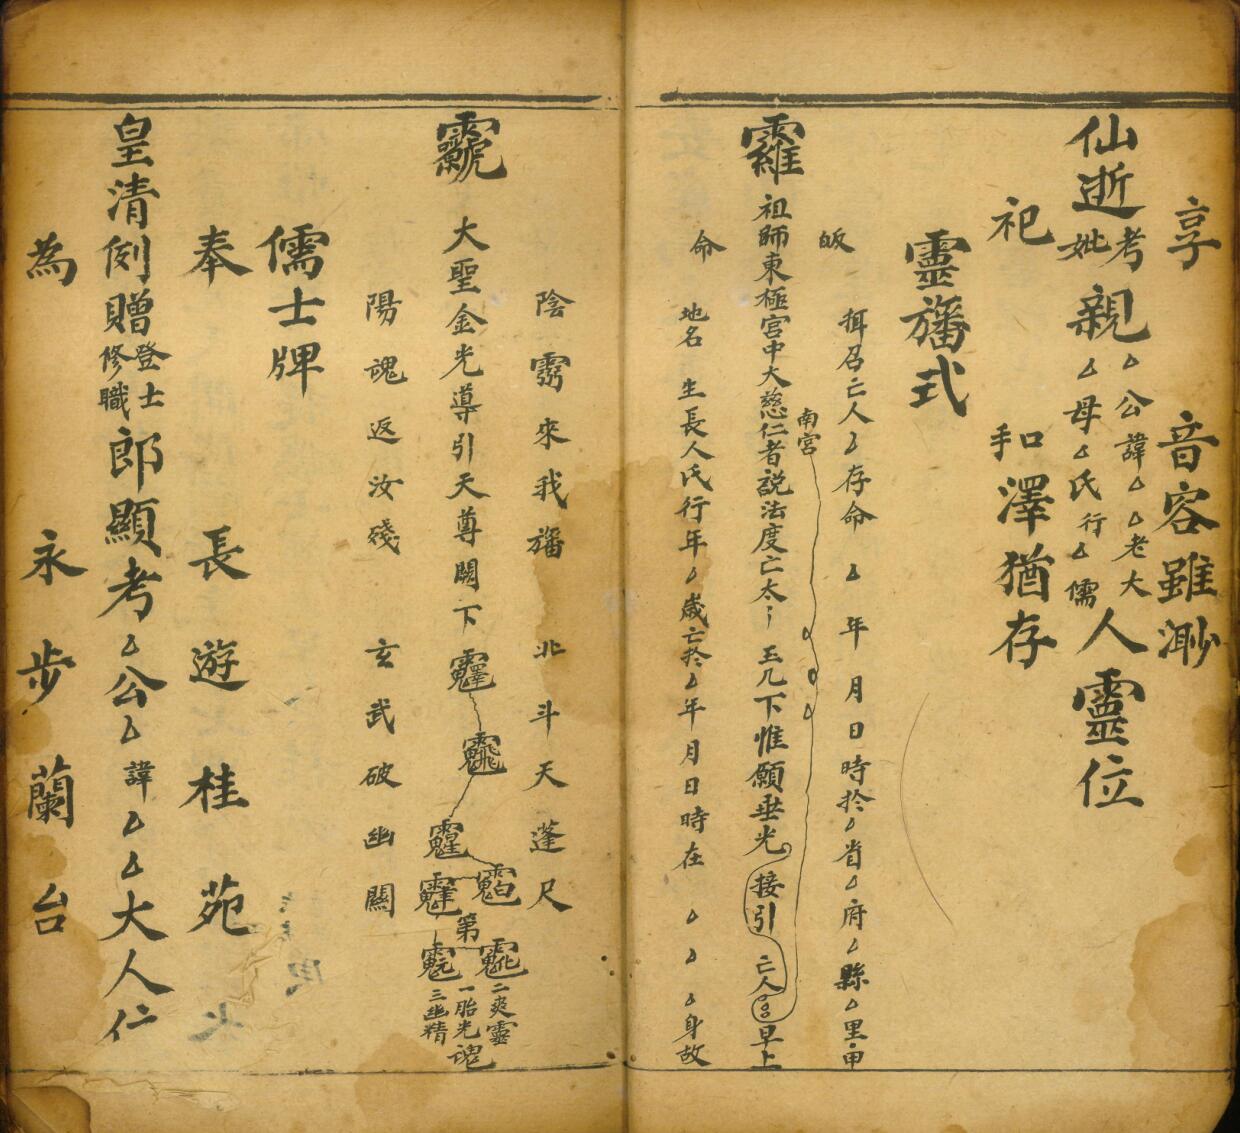 享 音容雖渺
仙逝考妣親厶公諱厶厶老大厶母厶氏行厶儒人靈位
祀 手口澤猶存
靈旛式
皈 拜召亡人厶存命厶年月日時扵厶省厶府厶縣厶里甲
南宮
祖師東極宮中大慈仁者說法度亡太乙玉几下惟願垂光接引亡人早上
命 地名生長人氏行年厶歲亡扵厶年月日時在厶厶厶身故
陰靈來我旛 北斗天蓬尺
大聖金光導引天尊闕下
第
二爽靈
一胎光魂
三幽精
陽魂返汝殘 玄武破幽關
儒士牌
奉 長遊桂苑
皇清例贈登士修職郎顯考厶公厶諱厶厶大人仁
為 永步蘭台